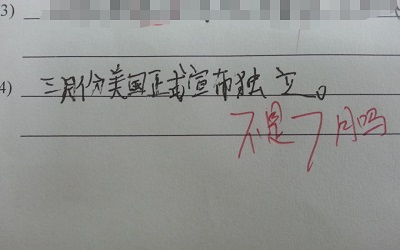 3)
4) 三月份美国正式宣布独立。
不是7月吗